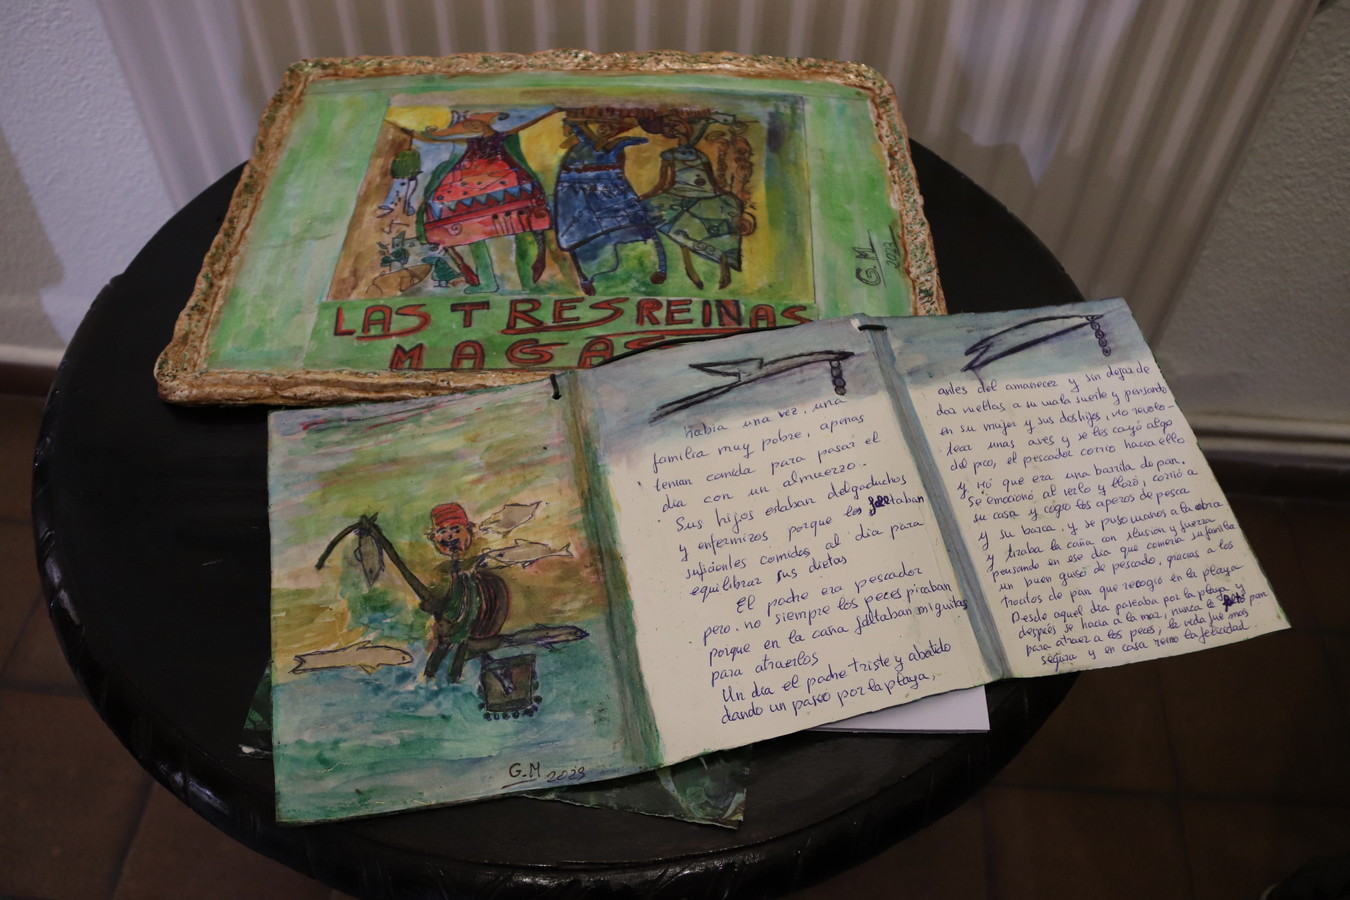 G.M
2023
LAS TRES REINAS
MAGAS
G.M 2023
había una vez, una
familia muy pobre, apenas
tenian comida para pasar el
día con un almuerzo.
Sus hijos estaban delgaduchos
y enfermizos porque les faltaban
suficientes comidas al día para
equilibrar sus dietas
El padre era pescador
pero no siempre los peces picaban
porque en la caña faltaban miguitas
para atraerlos
Un día el padre triste y abatido
dando un paseo por la playa,
antes del amanecer y sin dejar de
dar vueltas a su mala suerte y pensando
en su mujer y sus dos hijos, vio revolo-
tear unas aves y se les cayó algo
del pico, el pescador corrio hacia ello
y vió que era una barrita de pan.
Se emocionó al verlo y lloró, corrió a
su casa y cogió los aperos de pesca
y su barca, y se puso manos a la obra
y tiraba la caña con ilusión y fuerza
pensando en ese día que comería su familia
un buen guiso de pescado, gracias a los
trocitos de pan que recogió en la playa
Desde aquel día paseaba por la playa y
después se hacia a la mar, nunca le faltó pan
para atraer a los peces, la vida fué mas
segura y en casa reino la felicidad.